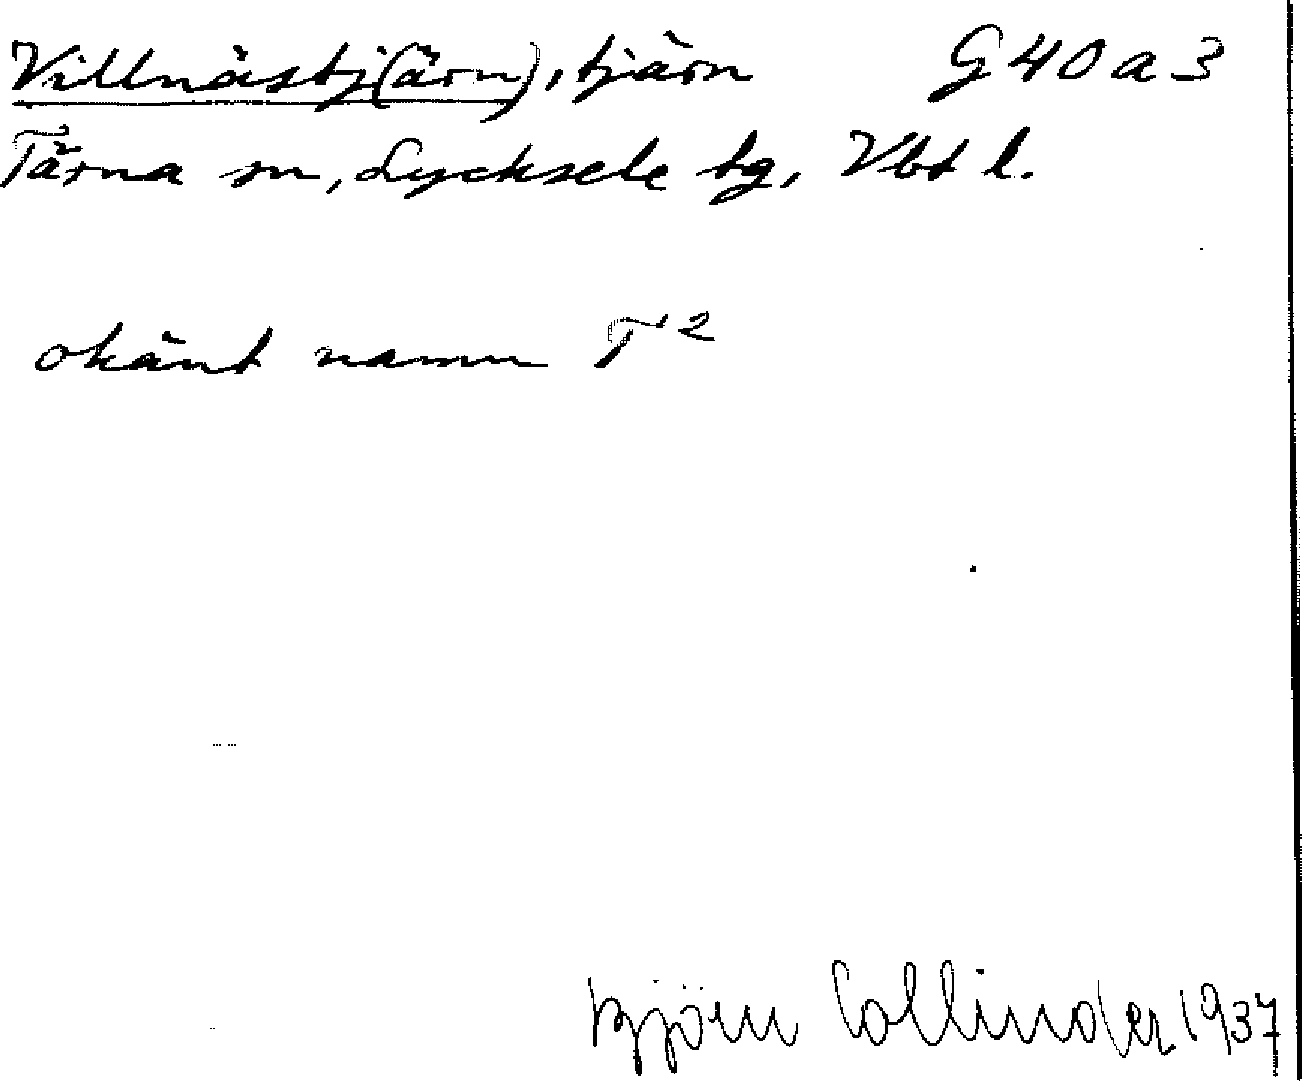 Villnästj(ärn), tjärn G 40 a 3
Tärna sn, Lycksele tg, Vbt l.
okänt namn T²
Björn Collinder 1937